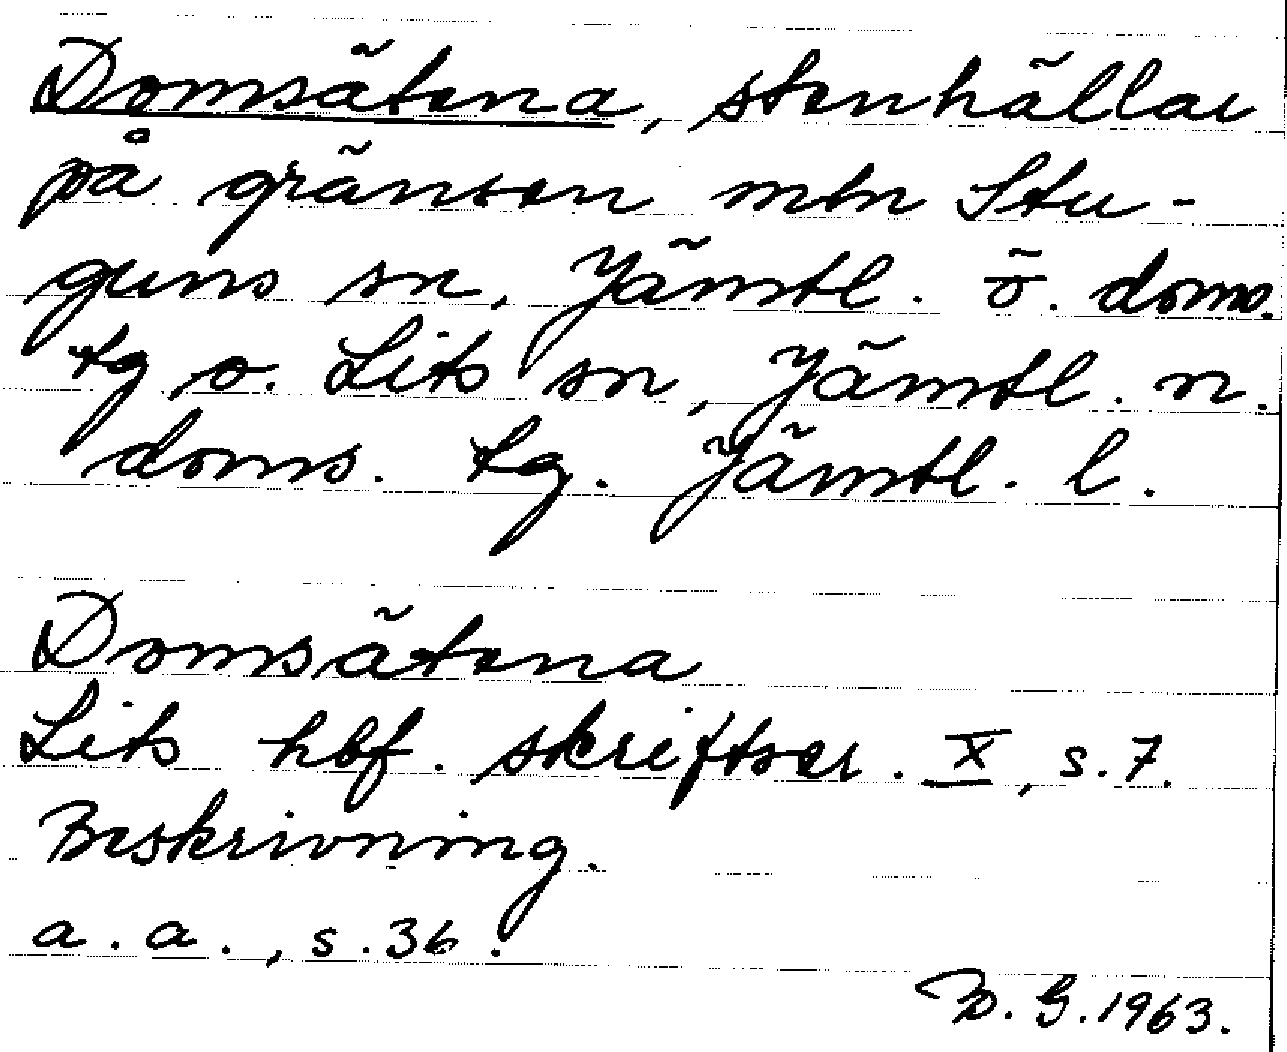 Domsätena, stenhällar
på gränsen mtn Stu-
guns sn, Jämtl. ö. doms.
tg o. Lits sn, Jämtl. n.
doms. tg. Jämtl. l.
Domsätena
Lits hbf. skriftser. X, s. 7.
Beskrivning.
a. a., s. 36.
B. G. 1963.